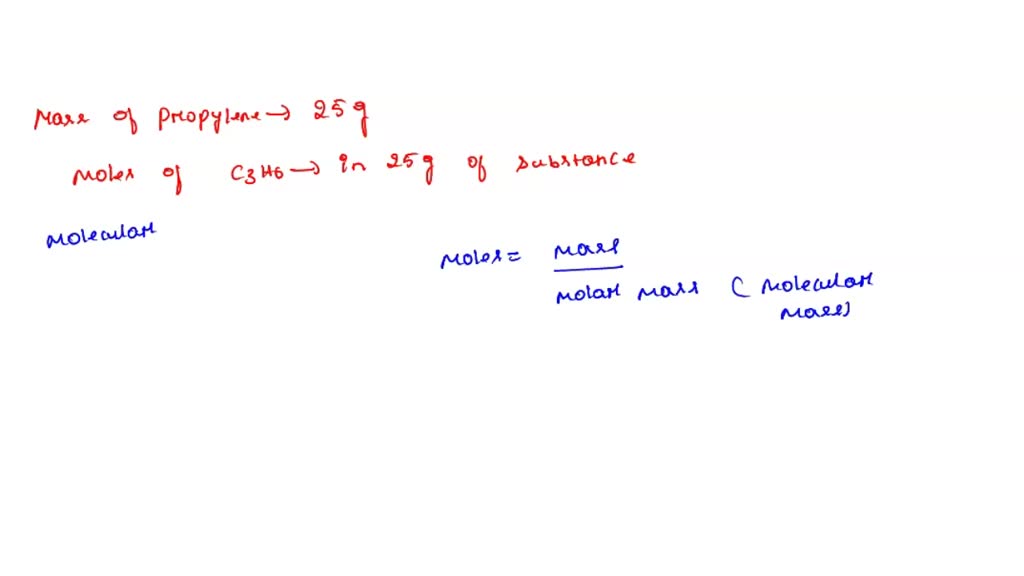 Mass of propylene → 25 g
Moles of C3H6 → in 25 g of substance
Molecular
Moles = Mass / Molar Mass (Molecular Mass)